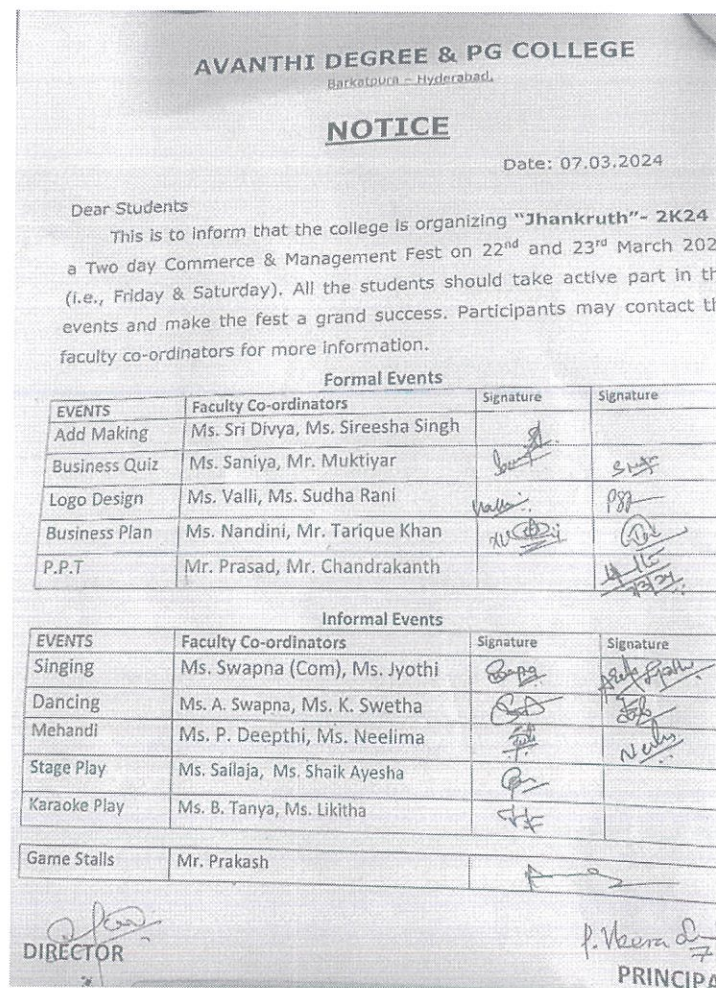 AVANTHI DEGREE & PG COLLEGE
Barkatpura – Hyderabad.
NOTICE
Date: 07.03.2024
Dear Students
This is to inform that the college is organizing "Jhankruth"- 2K24
a Two day Commerce & Management Fest on 22nd and 23rd March 202
(i.e., Friday & Saturday). All the students should take active part in th
events and make the fest a grand success. Participants may contact th
faculty co-ordinators for more information.
Formal Events
EVENTS Faculty Co-ordinators Signature Signature
Add Making Ms. Sri Divya, Ms. Sireesha Singh
Business Quiz Ms. Saniya, Mr. Muktiyar
Logo Design Ms. Valli, Ms. Sudha Rani
Business Plan Ms. Nandini, Mr. Tarique Khan
P.P.T Mr. Prasad, Mr. Chandrakanth
Informal Events
EVENTS Faculty Co-ordinators Signature Signature
Singing Ms. Swapna (Com), Ms. Jyothi
Dancing Ms. A. Swapna, Ms. K. Swetha
Mehandi Ms. P. Deepthi, Ms. Neelima
Stage Play Ms. Sailaja, Ms. Shaik Ayesha
Karaoke Play Ms. B. Tanya, Ms. Likitha
Game Stalls Mr. Prakash
DIRECTOR
PRINCIPA